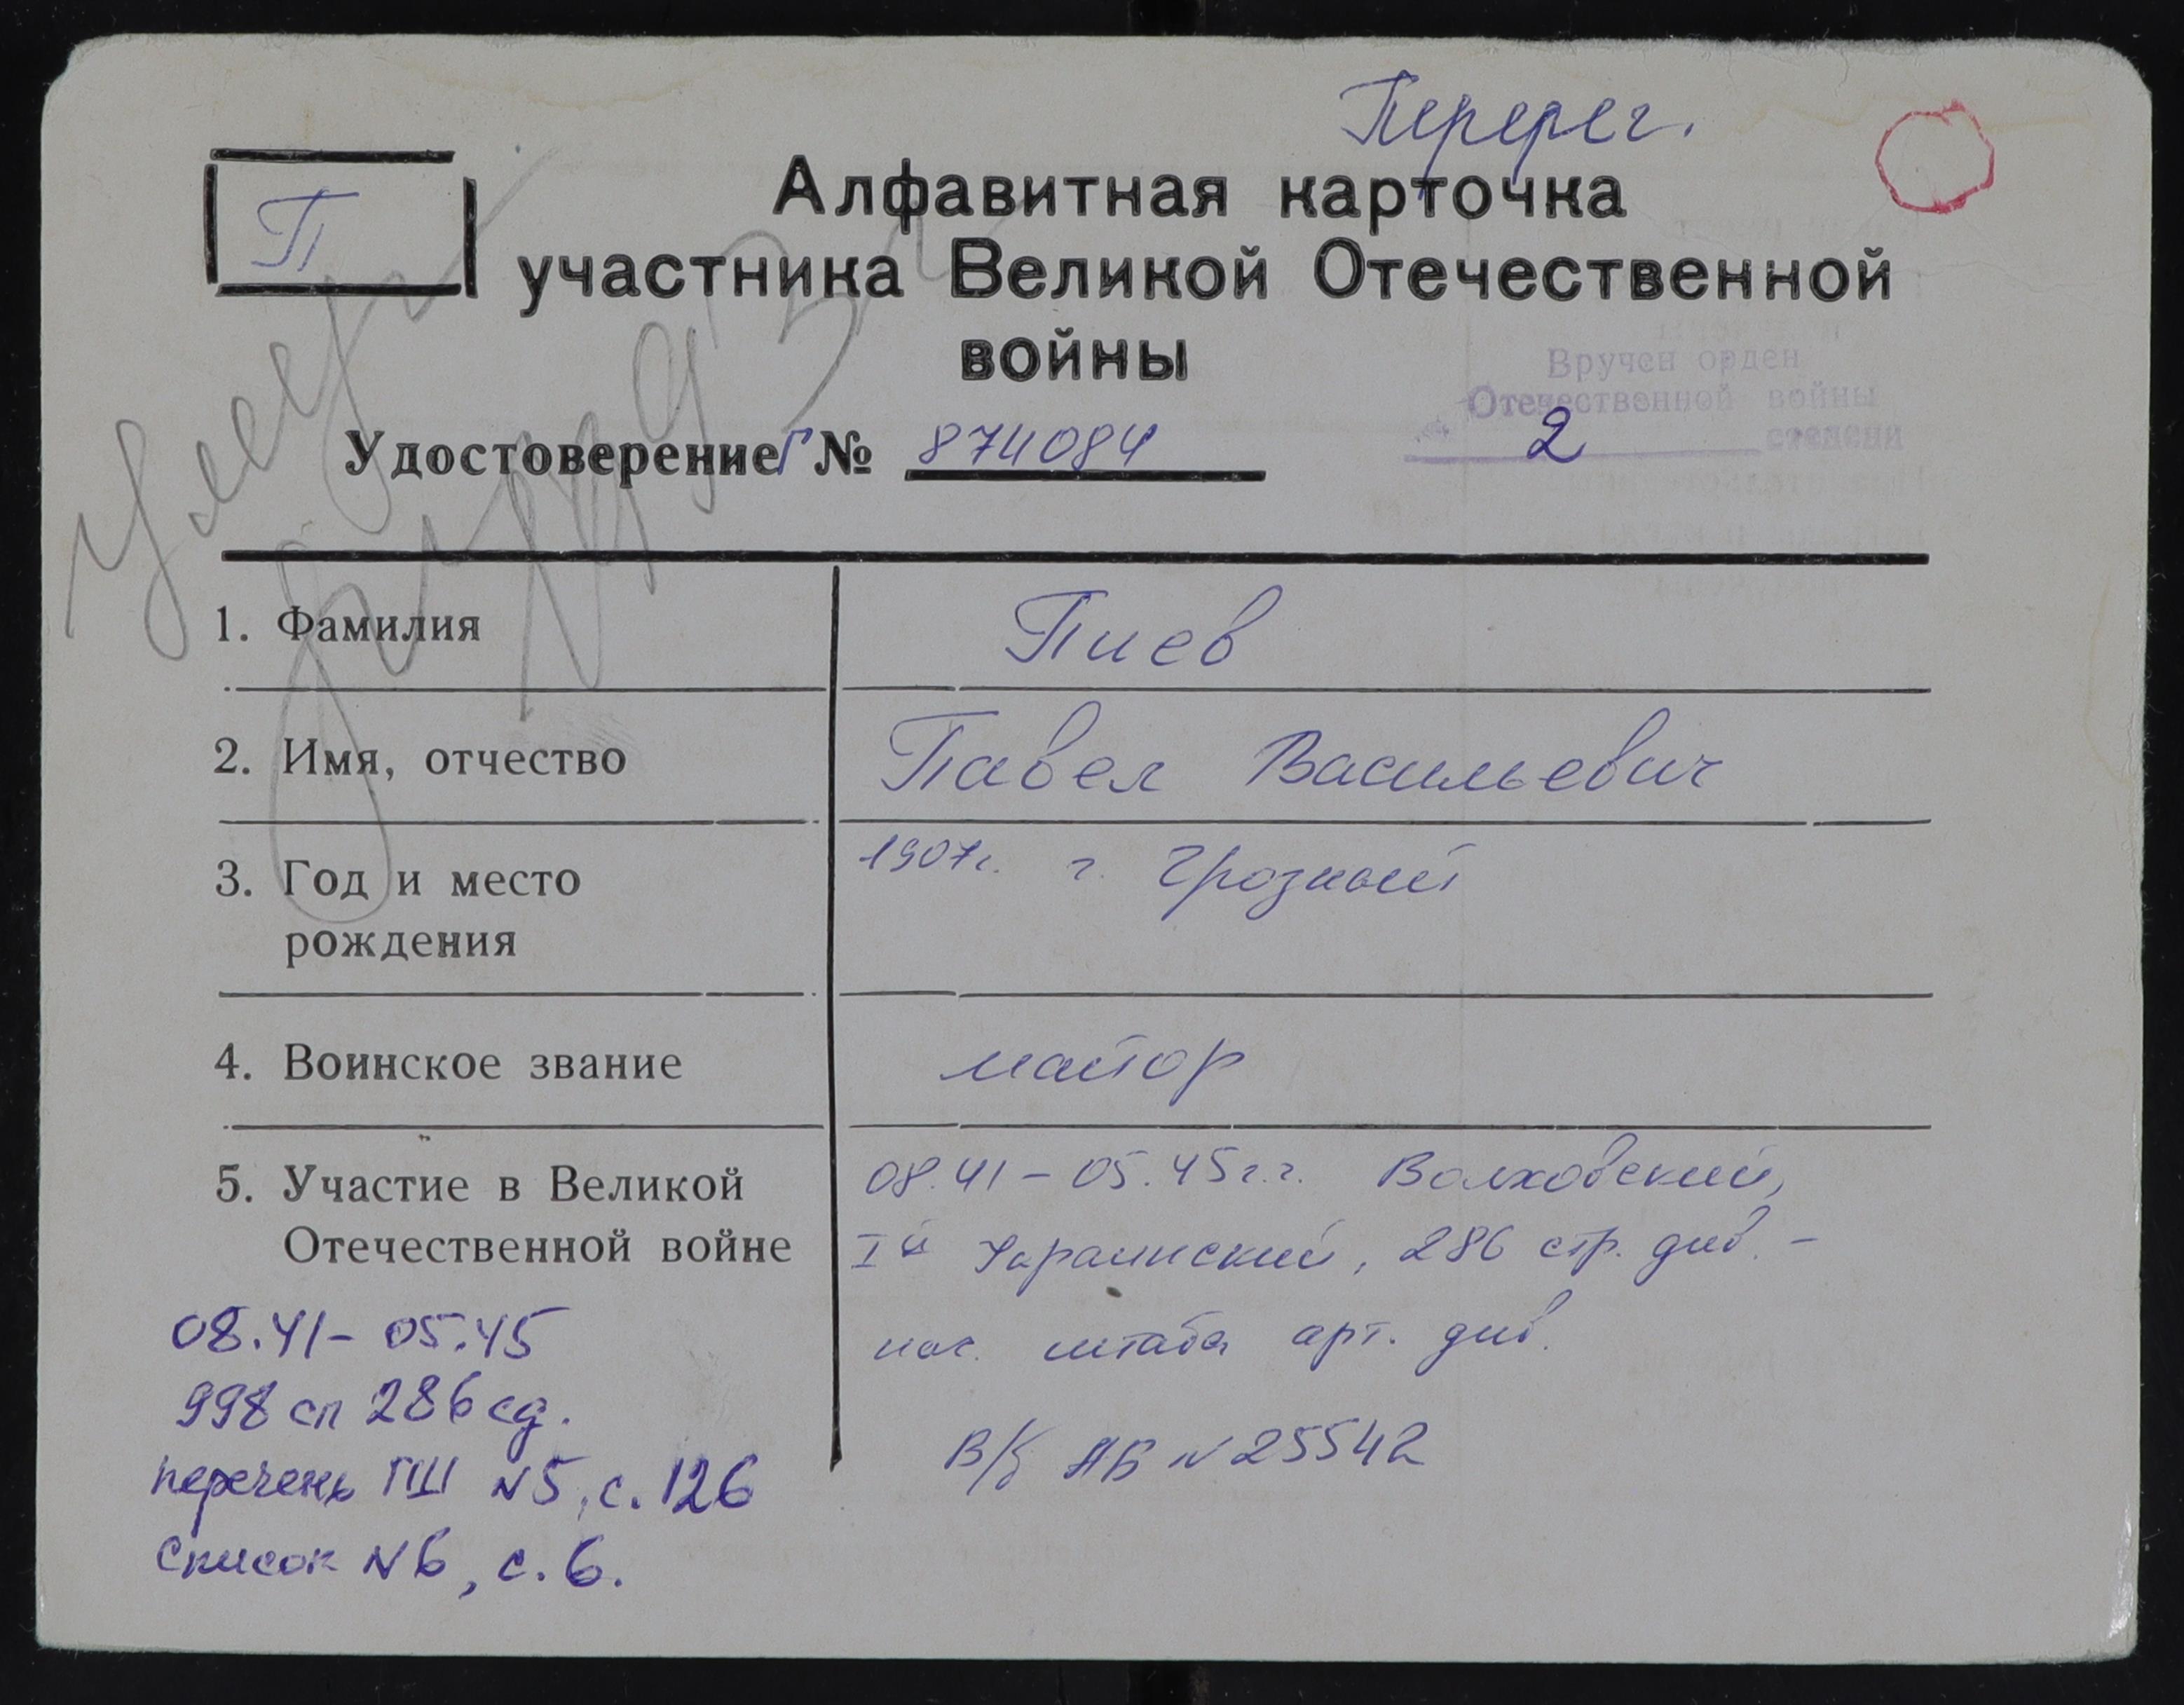 Перерег.
П
Алфавитная карточка
участника Великой Отечественной
войны
Вручен орден
Отечественной войны
2 степени
Удостоверение Г № 874084
1. Фамилия Пиев
2. Имя, отчество Павел Васильевич
3. Год и место 1907г. г. Грозный
рождения
4. Воинское звание майор
5. Участие в Великой 08.41 – 05.45г.г. Волховский,
Отечественной войне I й Украинский, 286 стр. див. –
нач. штаба арт. див.
08.41 – 05.45
998 сп 286 сд.
В/б АБ № 25542
перечень ГШ №5, с. 126
Список №6, с. 6.